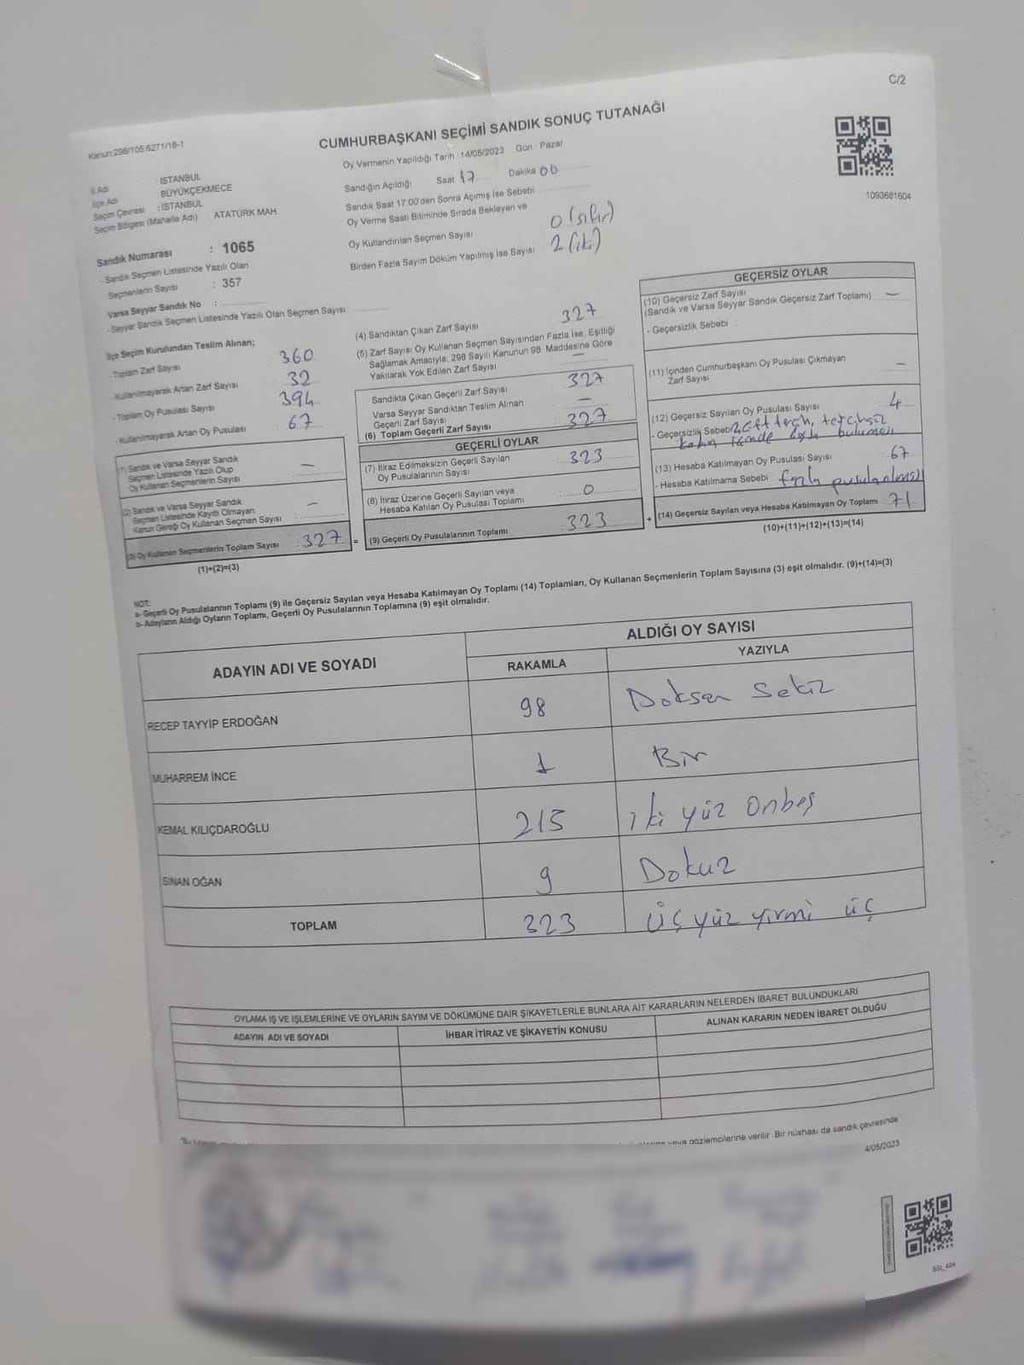 C/2
Kanun:298/105:6271/18-1
CUMHURBAŞKANI SEÇİMİ SANDIK SONUÇ TUTANAĞI
Oy Vermenin Yapıldığı Tarih :14/05/2023 Gün : Pazar
1093681604
İl Adı : İSTANBUL
İlçe Adı : BÜYÜKÇEKMECE
Seçim Çevresi : İSTANBUL
Seçim Bölgesi (Mahalle Adı) : ATATÜRK MAH.
Sandık Numarası : 1065
- Sandık Seçmen Listesinde Yazılı Olan
Seçmenlerin Sayısı : 357
Varsa Seyyar Sandık No :
- Seyyar Sandık Seçmen Listesinde Yazılı Olan Seçmen Sayısı
Sandığın Açıldığı Saat 17 Dakika 00
Sandık Saat 17.00'den Sonra Açılmış İse Sebebi
Oy Verme Saati Bitiminde Sırada Bekleyen ve
Oy Kullandırılan Seçmen Sayısı 0 (sıfır)
Birden Fazla Sayım Döküm Yapılmış İse Sayısı 2 (iki)
İlçe Seçim Kurulundan Teslim Alınan;
- Toplam Zarf Sayısı 360
- Kullanılmayarak Artan Zarf Sayısı 32
- Toplam Oy Pusulası Sayısı 394
- Kullanılmayarak Artan Oy Pusulası 67
(1) Sandık ve Varsa Seyyar Sandık
Seçmen Listesinde Yazılı Olup
Oy Kullanan Seçmenlerin Sayısı –
(2) Sandık ve Varsa Seyyar Sandık
Seçmen Listesinde Kayıtlı Olmayan
Kanun Gereği Oy Kullanan Seçmen Sayısı –
(3) Oy Kullanan Seçmenlerin Toplam Sayısı 327
(1)+(2)=(3)
(4) Sandıktan Çıkan Zarf Sayısı 327
(5) Zarf Sayısı Oy Kullanan Seçmen Sayısından Fazla İse, Eşitliği
Sağlamak Amacıyla; 298 Sayılı Kanunun 98. Maddesine Göre
Yakılarak Yok Edilen Zarf Sayısı –
Sandıkta Çıkan Geçerli Zarf Sayısı 327
Varsa Seyyar Sandıktan Teslim Alınan
Geçerli Zarf Sayısı –
(6) Toplam Geçerli Zarf Sayısı 327
GEÇERLİ OYLAR
(7) İtiraz Edilmeksizin Geçerli Sayılan
Oy Pusulasının Sayısı 323
(8) İtiraz Üzerine Geçerli Sayılan veya
Hesaba Katılan Oy Pusulası Toplamı 0
= (9) Geçerli Oy Pusulalarının Toplamı 323 +
GEÇERSİZ OYLAR
(10) Geçersiz Zarf Sayısı –
(Sandık ve Varsa Seyyar Sandık Geçersiz Zarf Toplamı)
- Geçersizlik Sebebi
(11) İçinden Cumhurbaşkanı Oy Pusulası Çıkmayan
Zarf Sayısı –
(12) Geçersiz Sayılan Oy Pusulası Sayısı 4
- Geçersizlik Sebebi
(13) Hesaba Katılmayan Oy Pusulası Sayısı 67
- Hesaba Katılmama Sebebi fazla
(14) Geçersiz Sayılan veya Hesaba Katılmayan Oy Toplamı 71
(10)+(11)+(12)+(13)=(14)
NOT:
a- Geçerli Oy Pusulalarının Toplamı (9) ile Geçersiz Sayılan veya Hesaba Katılmayan Oy Toplamı (14) Toplamları, Oy Kullanan Seçmenlerin Toplam Sayısına (3) eşit olmalıdır. (9)+(14)=(3)
b- Adayların Aldığı Oyların Toplamı, Geçerli Oy Pusulalarının Toplamına (9) eşit olmalıdır.
ADAYIN ADI VE SOYADI
ALDIĞI OY SAYISI
RAKAMLA YAZIYLA
RECEP TAYYİP ERDOĞAN 98 Doksan Sekiz
MUHARREM İNCE 1 Bir
KEMAL KILIÇDAROĞLU 215 iki yüz Onbeş
SİNAN OĞAN 9 Dokuz
TOPLAM 323 üç yüz yirmi üç
OYLAMA İŞ VE İŞLEMLERİNE VE OYLARIN SAYIM VE DÖKÜMÜNE DAİR ŞİKAYETLERLE BUNLARA AİT KARARLARIN NELERDEN İBARET BULUNDUKLARI
ADAYIN ADI VE SOYADI İHBAR İTİRAZ VE ŞİKAYETİN KONUSU ALINAN KARARIN NEDEN İBARET OLDUĞU
veya gözlemcilerine verilir. Bir nüshası da sandık çevresinde
4/05/2023